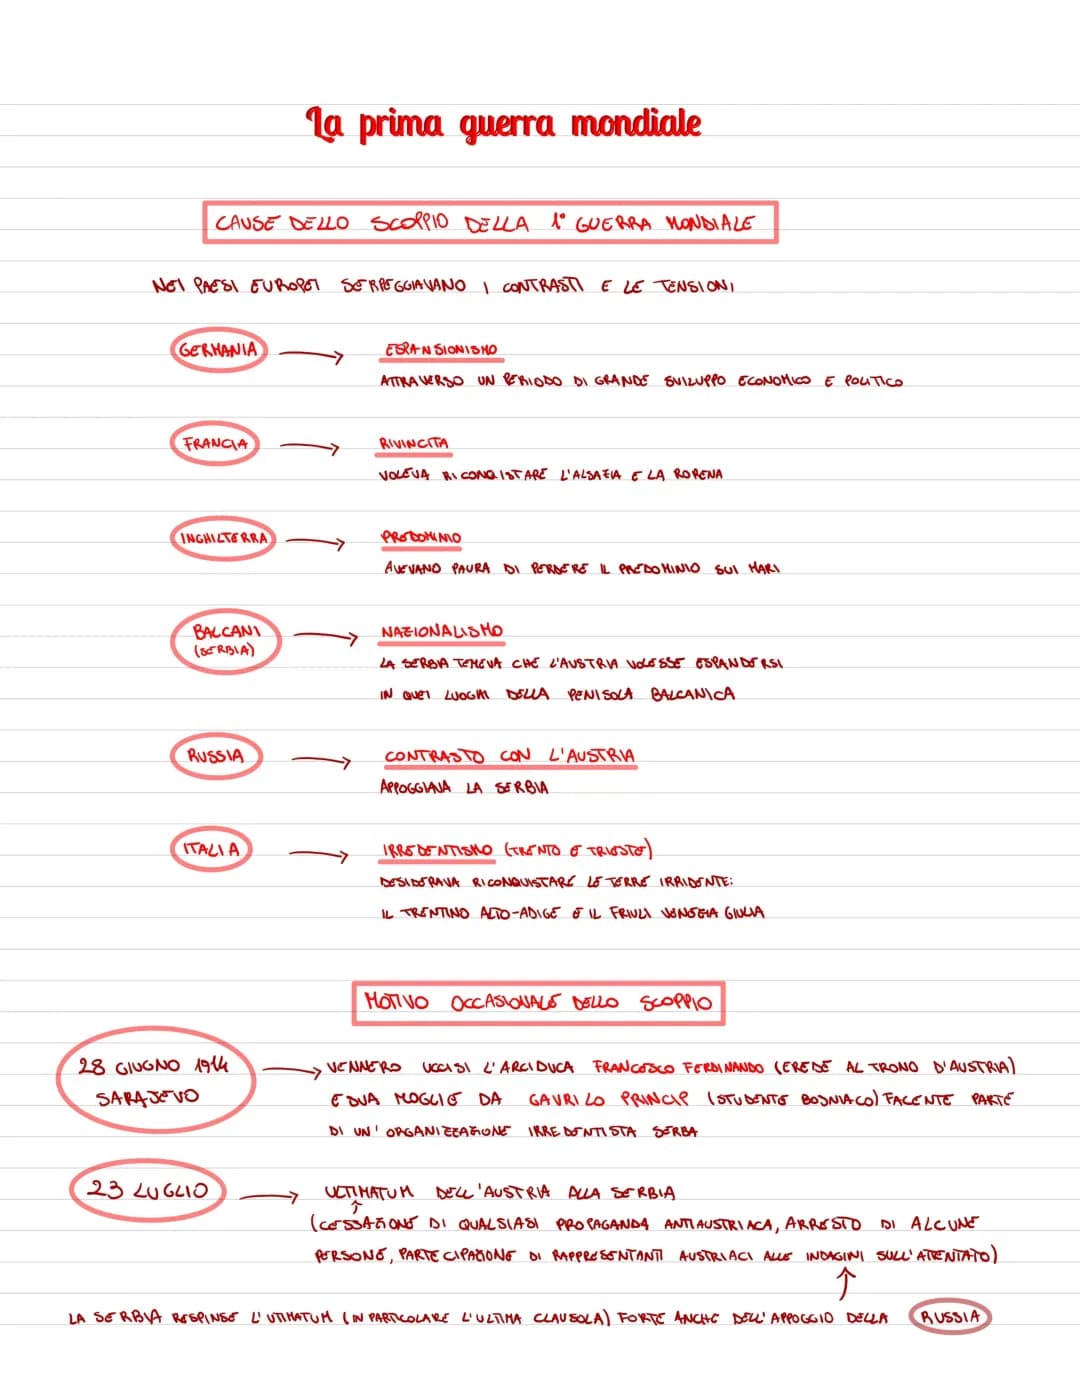 La prima guerra mondiale
CAUSE DELLO SCOPPIO DELLA 1° GUERRA MONDIALE
NEI PAESI EUROPEI SERPEGGIAVANO I CONTRASTI E LE TENSIONI
GERMANIA → ESPANSIONISMO
ATTRAVERSO UN PERIODO DI GRANDE SVILUPPO ECONOMICO E POLITICO
FRANCIA → RIVINCITA
VOLEVA RICONQISTARE L'ALSAZIA E LA RORENA
INGHILTERRA → PREDOMINIO
AVEVANO PAURA DI PERDERE IL PREDOMINIO SUI MARI
BALCANI (SERBIA) → NAZIONALISMO
LA SERBIA TEMEVA CHE L'AUSTRIA VOLESSE ESPANDERSI
IN QUEI LUOGHI DELLA PENISOLA BALCANICA
RUSSIA → CONTRASTO CON L'AUSTRIA
APPOGGIAVA LA SERBIA
ITALIA → IRREDENTISMO (TRENTO E TRIESTE)
DESIDERAVA RICONQUISTARE LE TERRE IRRIDENTE:
IL TRENTINO ALTO-ADIGE E IL FRIULI VENEZIA GIULIA
MOTIVO OCCASIONALE DELLO SCOPPIO
28 GIUGNO 1914
SARAJEVO
→ VENNERO UCCISI L'ARCIDUCA FRANCESCO FERDINANDO (EREDE AL TRONO D'AUSTRIA)
E SUA MOGLIE DA GAVRILO PRINCIP (STUDENTE BOSNIACO) FACENTE PARTE
DI UN' ORGANIZZAZIONE IRREDENTISTA SERBA
23 LUGLIO → ULTIMATUM DELL'AUSTRIA ALLA SERBIA
(CESSAZIONE DI QUALSIASI PROPAGANDA ANTIAUSTRIACA, ARRESTO DI ALCUNE
PERSONE, PARTECIPAZIONE DI RAPPRESENTANTI AUSTRIACI ALLE INDAGINI SULL'ATTENTATO)
LA SERBIA RESPINSE L'UTIMATUM (IN PARTICOLARE L'ULTIMA CLAUSOLA) FORTE ANCHE DELL'APPOGGIO DELLA RUSSIA